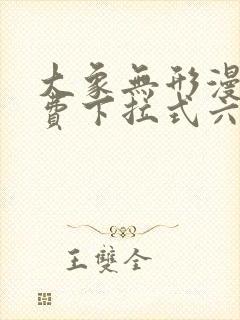 大象無形漫
費下拉式六
王雙全